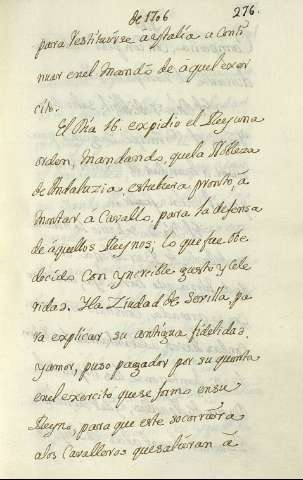 de 1706
276.
para restituirse à ytalia à Conti
nuar en el Mando de àquel exer
cito.
El Dia 16. expidio el Rey una
orden, Mandando, que la Nobleza
de Andaluzia estubiera pronta, à
Montar à Cavallo, para la defensa
de àquellos Reynos; lo que fue obe
decido con yncreible gusto y cele
ridad. Y la Ziudad de Sevilla pa
ra explicar su antigua fidelidad
y amor, puso pagador por su quenta
en el exercito que se formo en su
Reyno, para que este socorriera
a los Cavalleros que salieran à